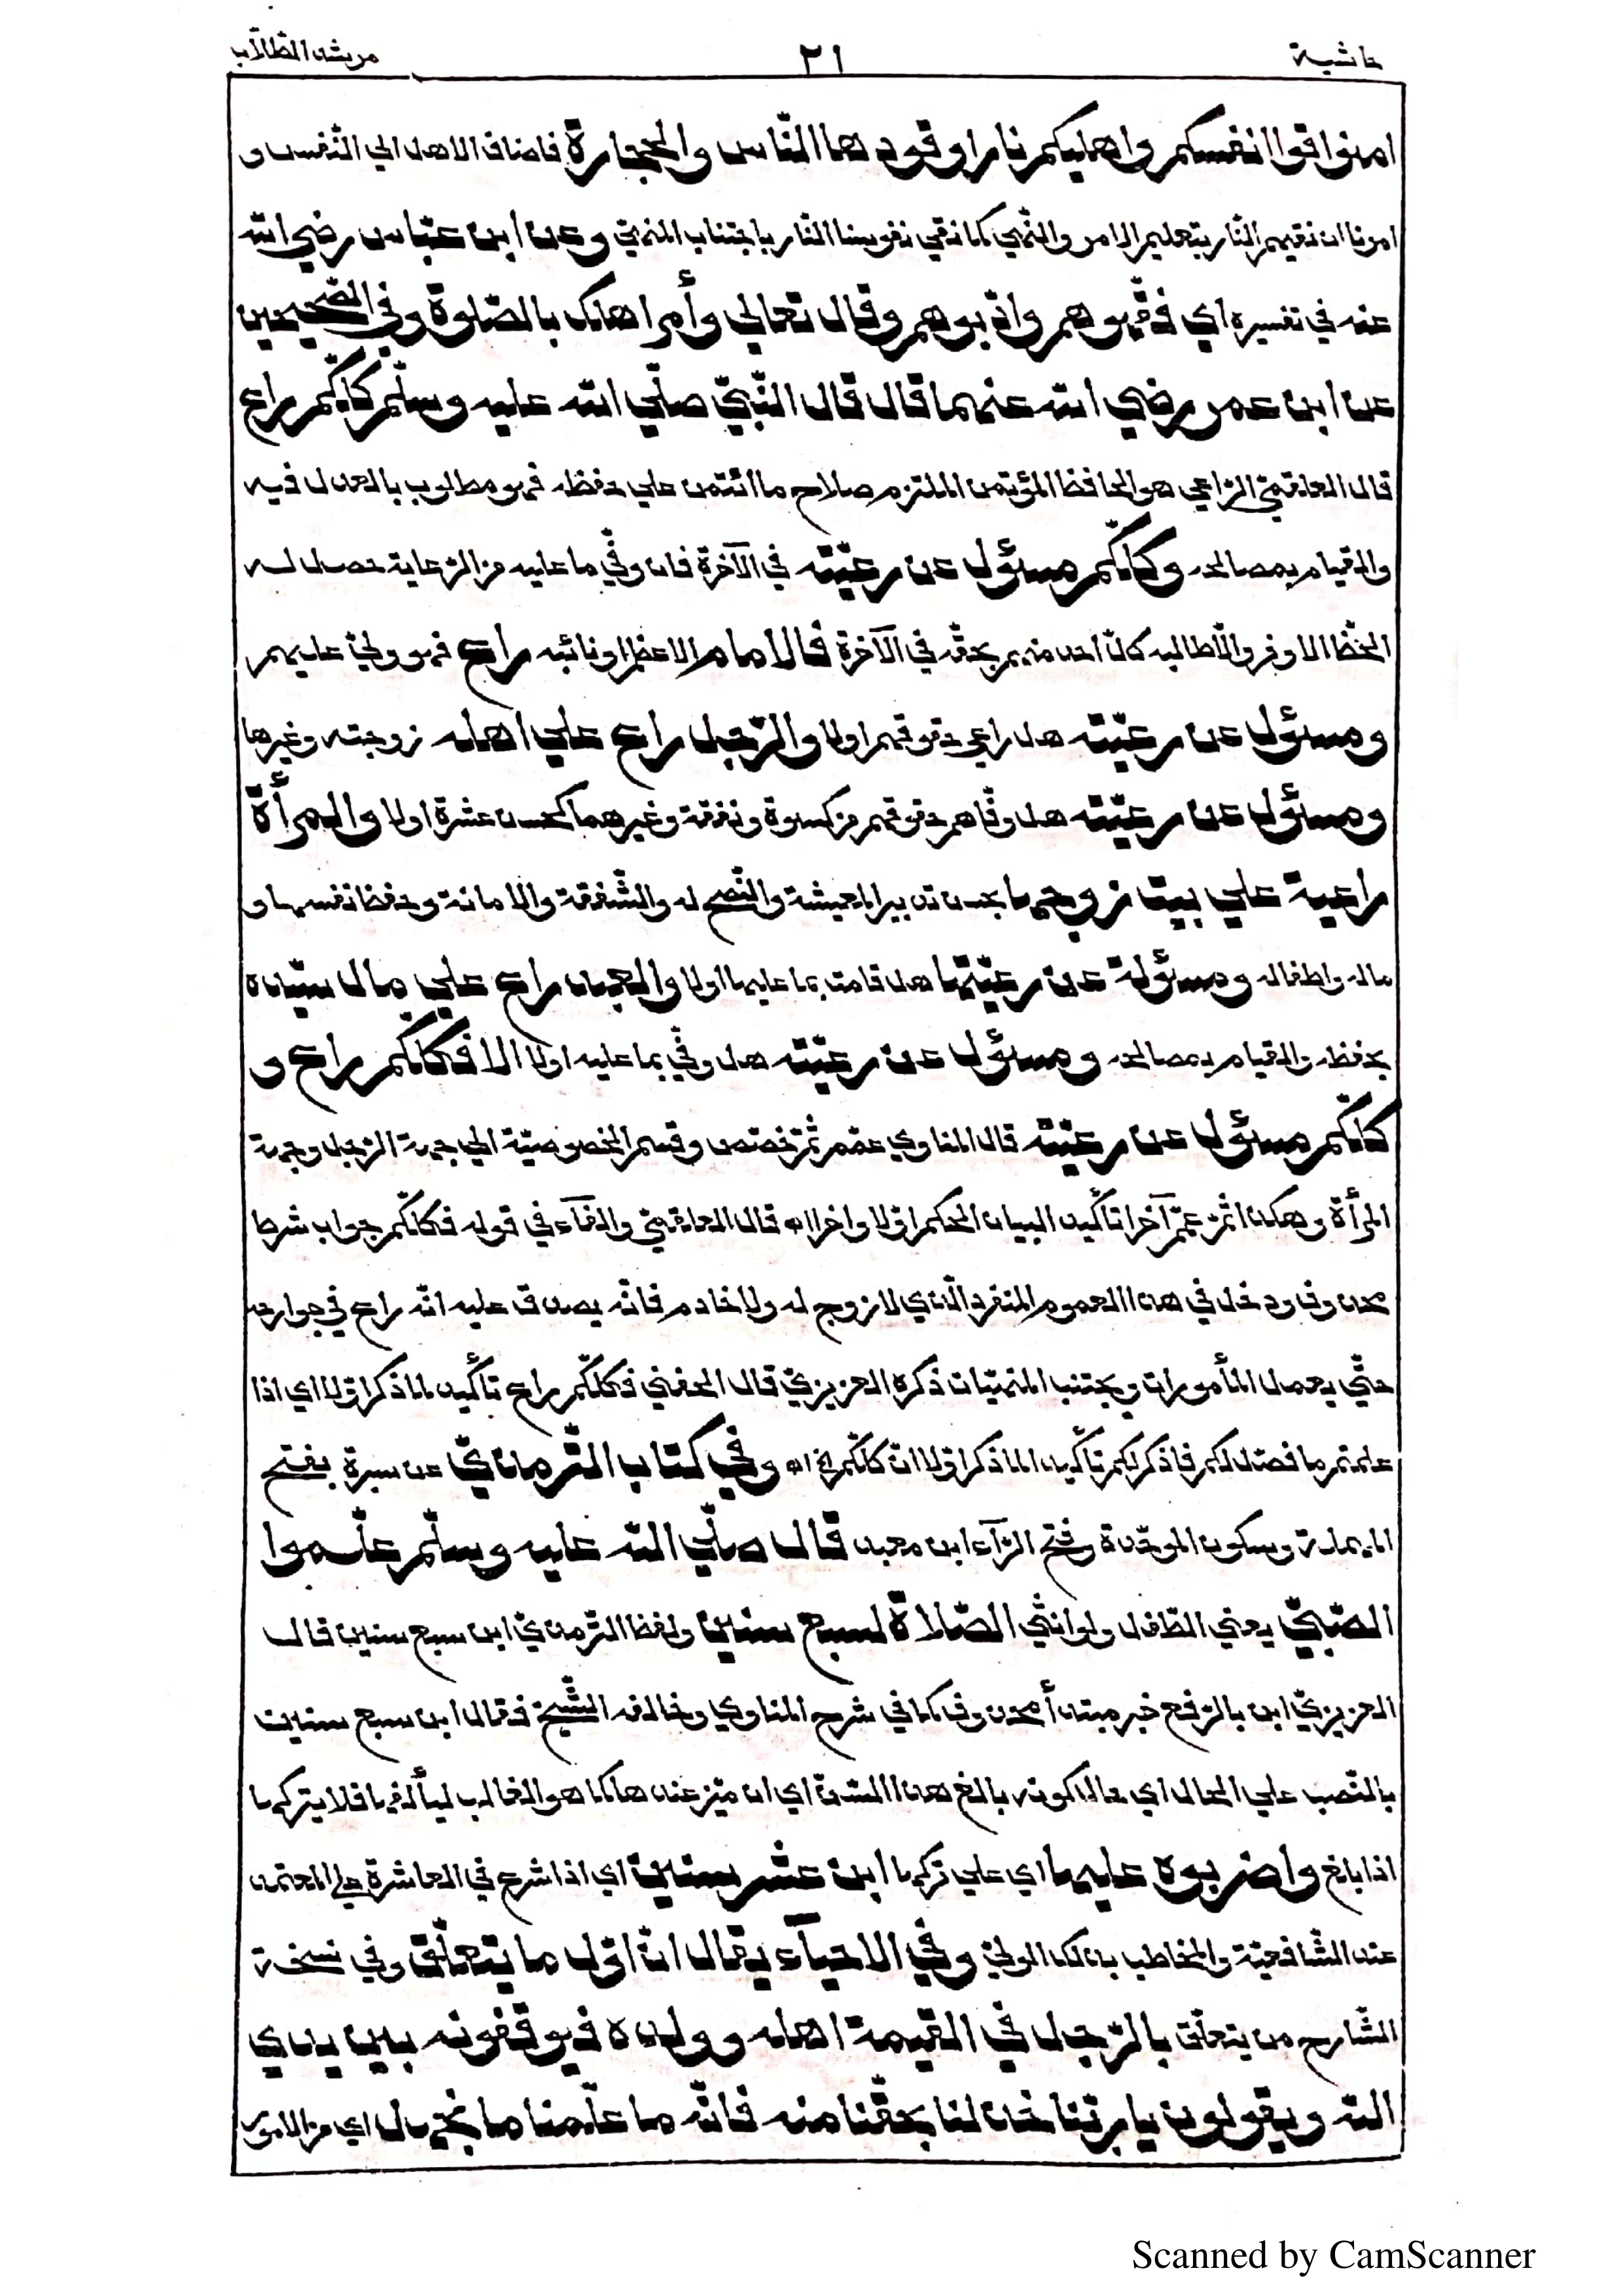 حاشية ٢١ مرشد الطّلّاب
امنوا قوا انفسكم واهليكم نارا وقودها النّاس والحجارة فاضاف الاهل الي النّفس و
امرنا ان نقيهم النّار بتعليم الامر والنّهي كما نقي نفوسنا النّار باجتناب المنهيّ وعن ابن عبّاس رضي الله
عنه في تفسيره اي فقّهوهم وادّبوهم وقال تعالي وأمر اهلك بالصّلوة وفي الصّحيحين
عن ابن عمر رضي الله عنهما قال قال النّبيّ صلّي الله عليه وسلّم كلّكم راع
قال العلقميّ الرّاعي هو الحافظ المؤتمن الملتزم صلاح ما ائتمن علي حفظه فهو مطلوب بالعدل فيه
والقيام بمصالحه وكلّكم مسئول عن رعيّته في الآخرة فان وفّي ما عليه من الرّعاية حصل له
الحظّ الاوفر والّا طالبه كلّ احد منهم بحقّه في الآخرة فالامام الاعظم او نائبه راع فهو وليّ عليهم
ومسئول عن رعيّته هل راعي حقوقهم اولا والرّجل راع علي اهله زوجته وغيرها
ومسئول عن رعيّته هل وفّاهم حقوقهم من كسوة ونفقة وغيرهما كحسن عشرة اولا والمرأة
راعية علي بيت زوجها بحسن تدبير المعيشة والنّصح له والشّفقة والامانة وحفظ نفسها و
ماله واطفاله ومسئولة عن رعيّتها هل قامت بما عليها اولا والعبد راع علي مال سيّده
بحفظه والقيام بمصالحه ومسئول عن رعيّته هل وفّي بما عليه اولا الا فكلّكم راع و
كلّكم مسئول عن رعيّته قال المناوي عمّم ثمّ خصّص وقسم الخصوصيّة الي جهة الرّجل وجهة
المرأة وهكذا ثمّ عمّ آخرا تأكيد البيان الحكم اوّلا واخرا اه قال العلقميّ والفآء في قوله فكلّكم جواب شرط
محذوف ودخل في هذا العموم المنفرد الّذي لا زوج له ولا خادم فانّه يصدق عليه انّه راع في جوارحه
حتّي يعمل المأمورات ويجتنب المنهيّات ذكره العزيزيّ قال الحفني فكلّكم راع تأكيد لما ذكر اوّلا اي اذا
علمتم ما فصّل لكم فاذكر لكم تأكيدا لما ذكر اوّلا انّ كلّكم الخ اه وفي كتاب التّرمذيّ عن سبرة بفتح
المهملة وسكون الموحّدة وفتح الرّآء ابن معبد قال صلّي اللّه عليه وسلّم علّموا
الصّبيّ يعني الطّفل ولو انثي الصّلاة لسبع سنين ولفظ التّرمذيّ ابن سبع سنين قال
العزيزيّ ابن بالرّفع خبر مبتدأ محذوف كما في شرح المناوي وخالفه الشّيخ فقال ابن سبع سنين
بالنّصب علي الحال اي حال كونه بالغ هذا السّنّ اي ان ميّز عندها كما هو الغالب ليألفها فلا يتركها
اذا بلغ واضربوه عليها اي علي تركها ابن عشر سنين اي اذا شرع في العاشرة علي المعتمد
عند الشّافعيّة والمخاطب بذلك الوليّ وفي الاحيآء يقال انّ اوّل ما يتعلّق وفي نسخة
الشّارح من يتعلّق بالرّجل في القيمة اهله وولده فيوقفونه بين يدي
اللّه ويقولون يا ربّنا خذ لنا بحقّنا منه فانّه ما علّمنا ما نجهل اي من الامور
Scanned by CamScanner